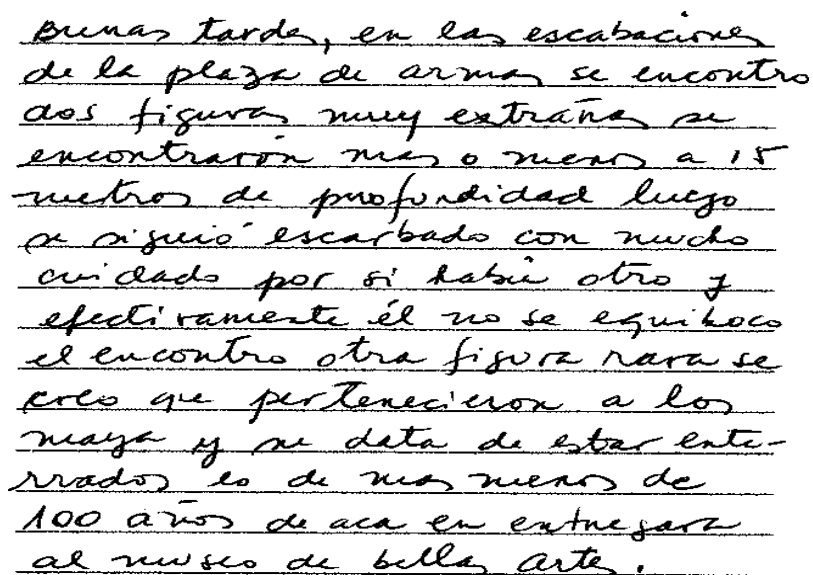 Buenas tardes, en las escabaciones
de la plaza de armas se encontro
dos figuras muy extrañas se
encontrarón mas o menos a 15
metros de profundidad luego
se siguió escarbado con mucho
cuidado por si habia otro y
efectivamente él no se equiboco
el encontro otra figura rara se
creo que pertenecieron a los
maya y su data de estar ente-
rrados es de mas menos de
100 años de aca en entregara
al museo de bellas artes.